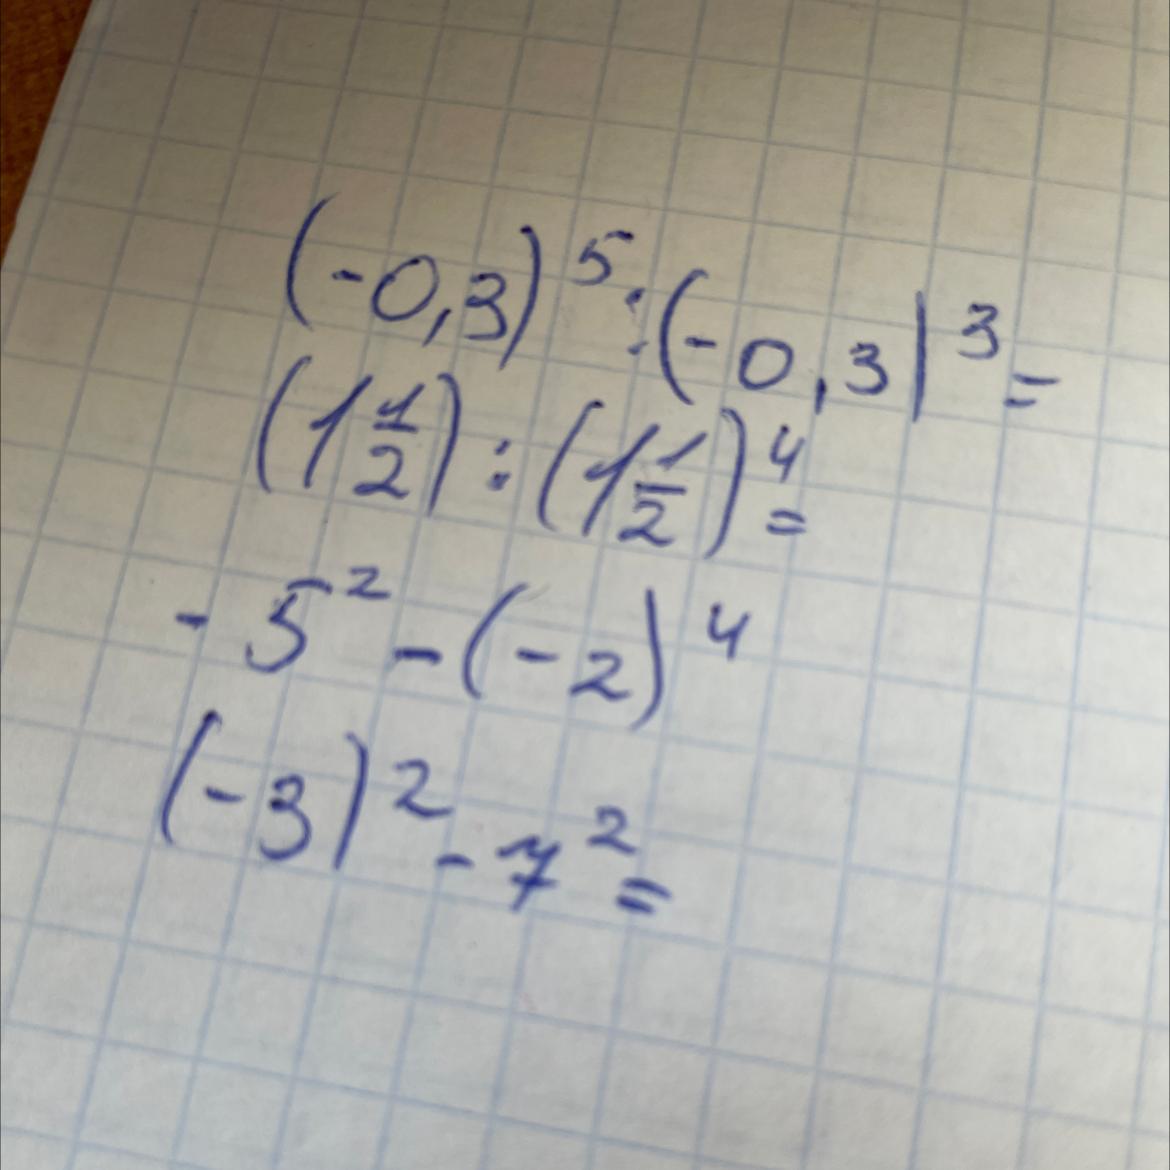 (-0,3)⁵:(-0,3)³=
(1 1/2):(1 1/2)⁴=
-5²-(-2)⁴
(-3)²-7²=